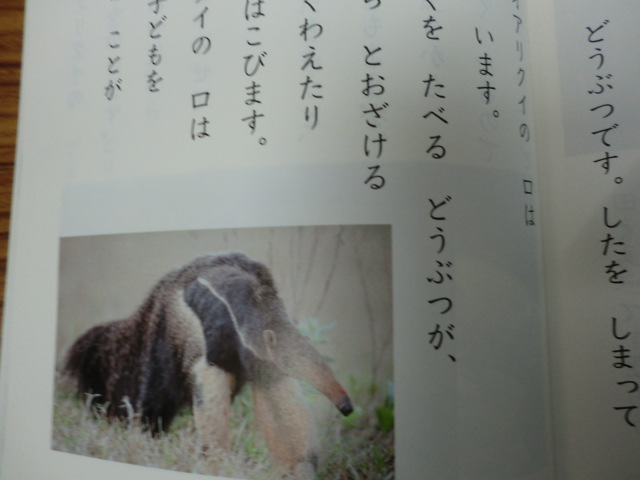 どうぶつです。したを しまって
アリクイの 口は
います。
を たべる どうぶつが、
とおざける
くわえたり
はこびます。
イの 口は
子どもを
ことが